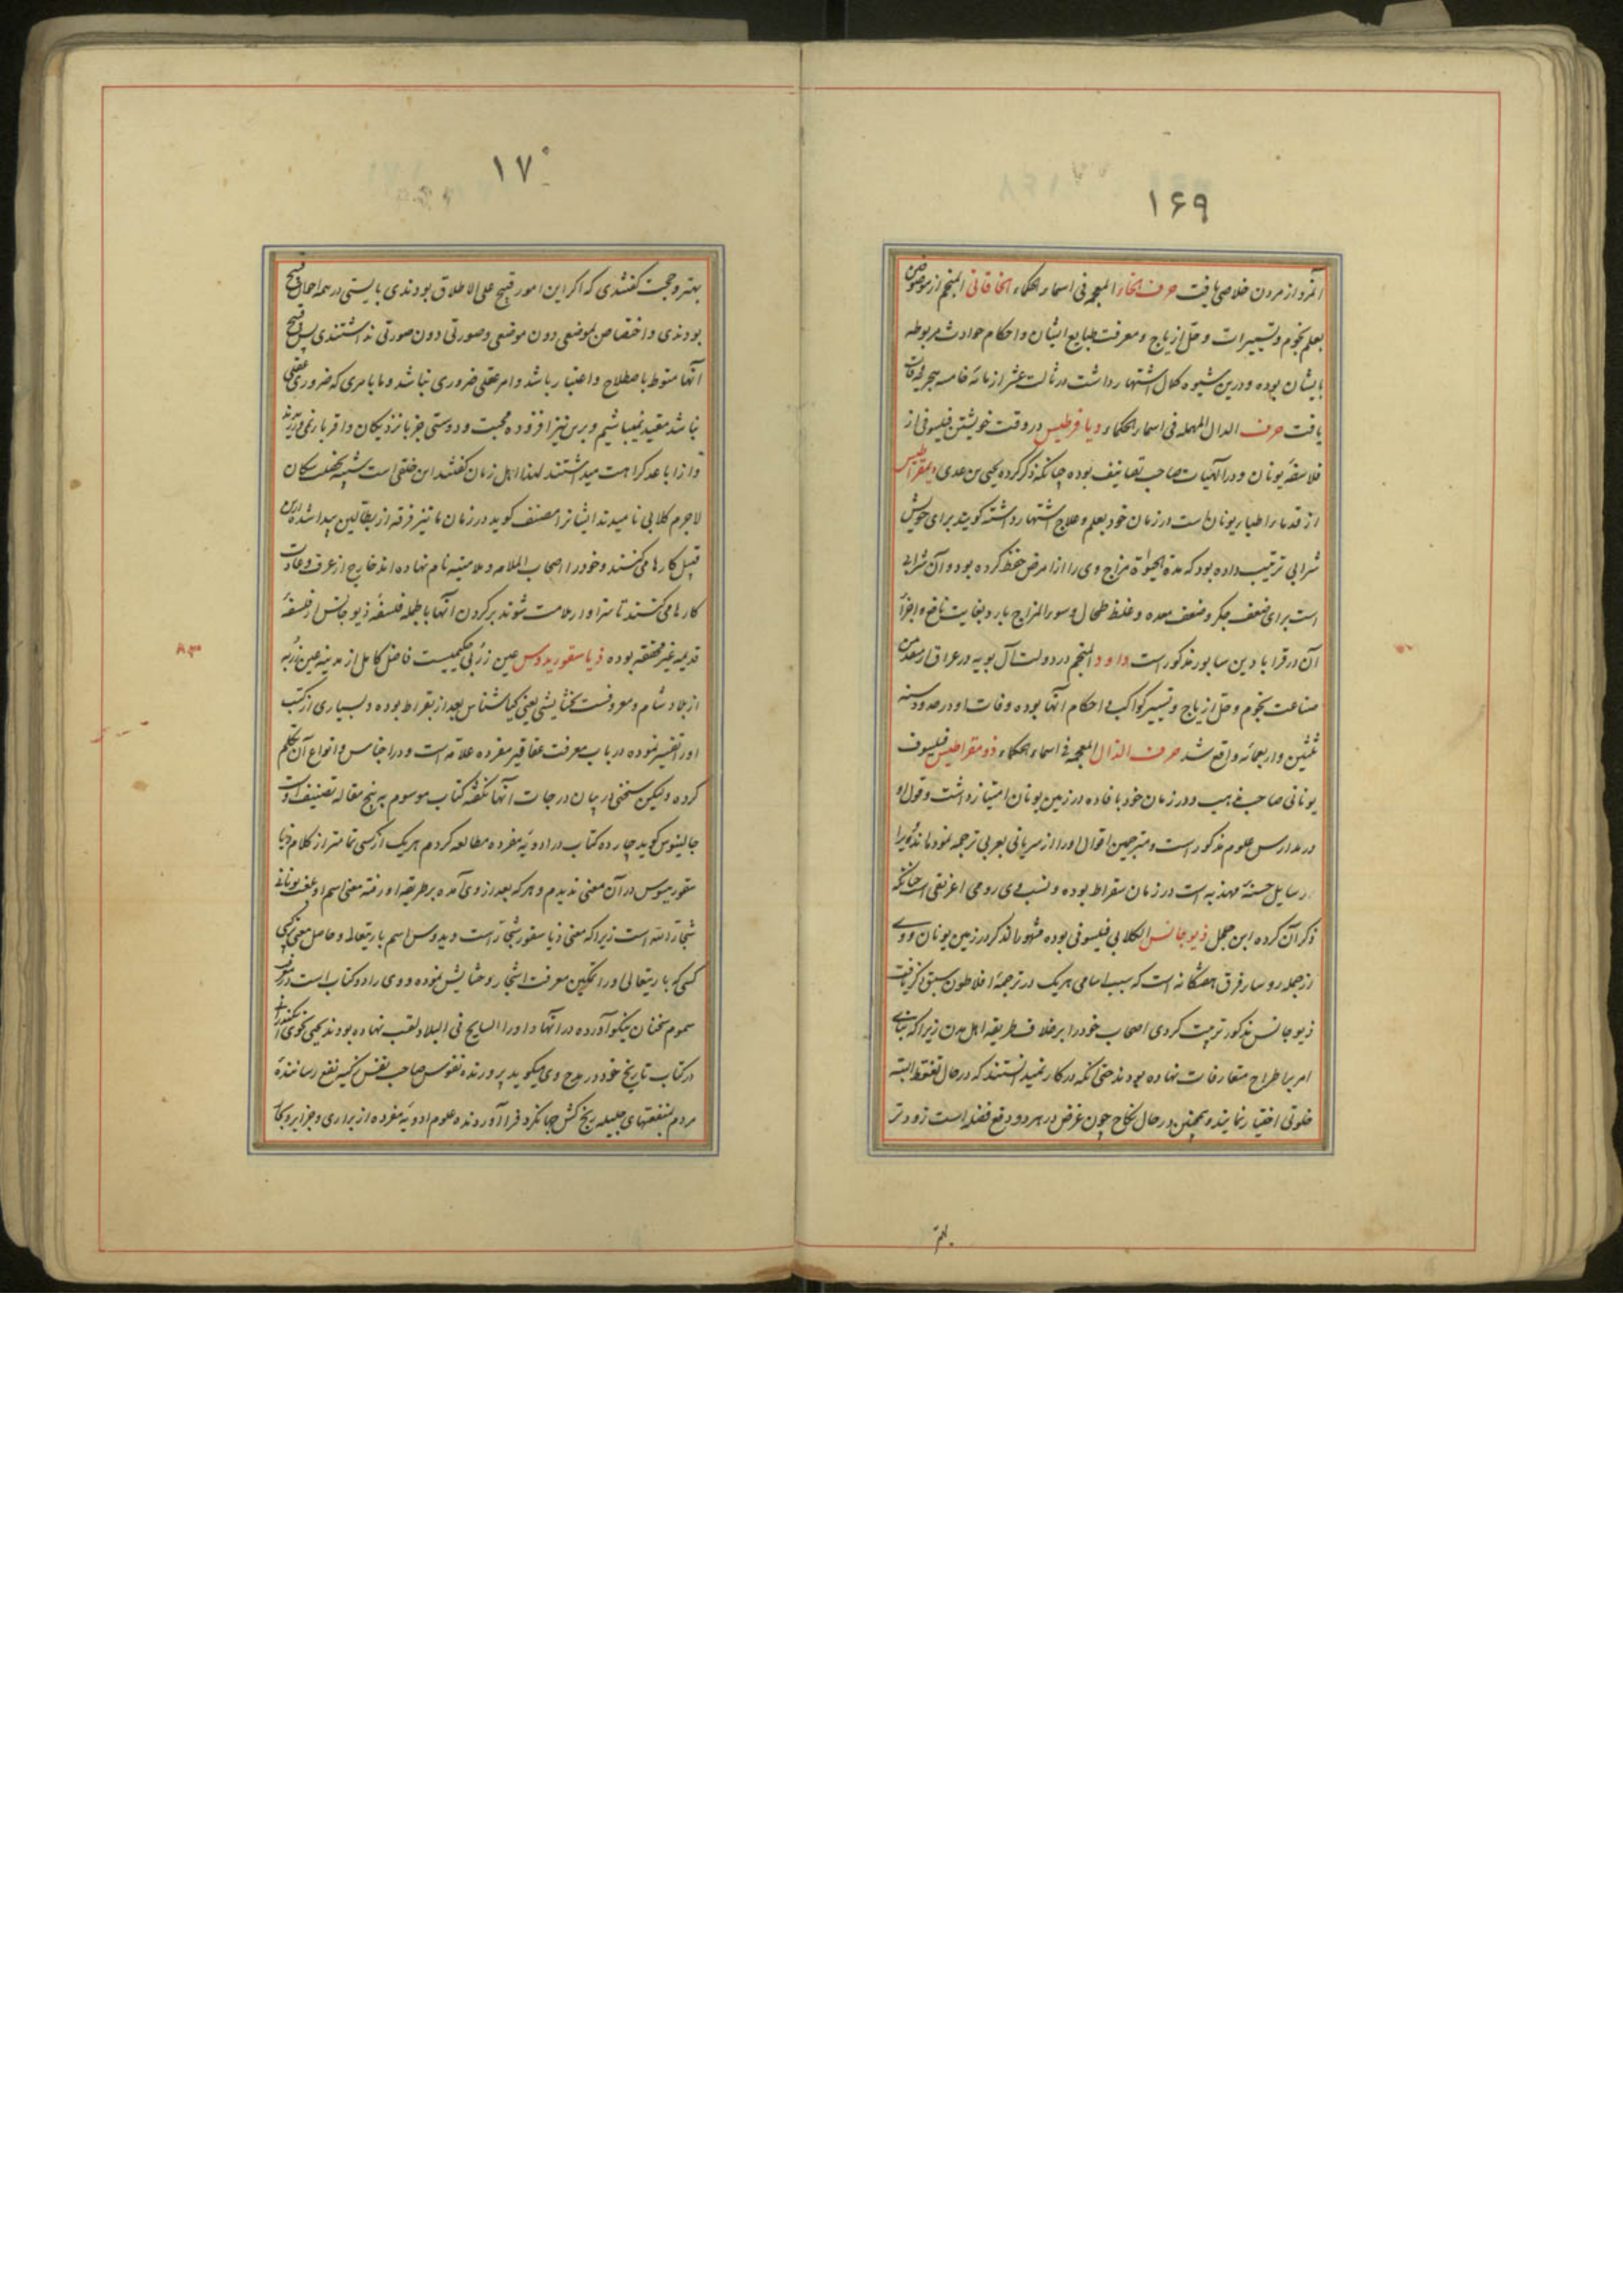 ۱۶۹
آنمرد از مردن خلاصی یافت حرف الخاء المعجمه فی اسماء الحکماء الخاقانی المنجم از موصوفین
بعلم نجوم و تسییرات و حل ازیاج و معرفت طبایع ایشان و احکام حوادث مربوطه
بایشان بوده و درین شیوه کمال اشتهار داشت در ثالث عشر از مائه خامسه هجریه وفات
یافت حرف الدال المهمله فی اسماء الحکماء دیافرطیس در وقت خویشتن فیلسوفی از
فلاسفهٔ یونان و در الهیات صاحب تصانیف بوده چنانکه ذکر کرده یحیی بن عدی دیمقراطیس
از قدماء اطباء یونان است در زمان خود بعلم و علاج اشتهار داشته گویند برای خویش
شرابی ترتیب داده بود که مدة الحیوة مزاج وی را از امراض حفظ کرده بود و آن شرابی
است برای ضعف جگر و ضعف معده و غلظ طحال و سوء المزاج بارد بغایت نافع و اجزاء
آن در قرابادین سابور مذکور است داود المنجم در دولت آل بویه در عراق از متعمدین
صناعت نجوم و حل ازیاج و تسییر کواکب و احکام آنها بوده وفات او در حدود سنه
ثلثین و اربعمائه واقع شد حرف الذال المعجمه فی اسماء الحکماء ذومقراطیس فیلسوف
یونانی صاحب مذهب و در زمان خود بافاده در زمین یونان امتیاز داشت و قول او
در مدارس علوم مذکور است و مترجمین اقوال او را از سریانی بعربی ترجمه نموده‌اند و ویرا
رسایل حسنهٔ مهذبه است در زمان سقراط بوده و نسب وی رومی اغریقی است چنانکه
ذکر آن کرده ابن جلجل ذیوجانس الکلابی فیلسوفی بوده مشهور الذکر در زمین یونان و وی
از جمله روساء فرق هفتگانه است که سبب اسامی هریک در ترجمهٔ افلاطون سبق ذکر یافت
ذیوجانس مذکور تربیت کردی اصحاب خود را بر خلاف طریقه اهل مدن زیرا که بنای
امر باطراح متعارفات نهاده بودند حتی آنکه در کار نمیدانستند که در حال تغوط البته
خلوتی اختیار نمایند و همچنین در حال نکاح چون غرض در هر دو دفع فضله است زودتر
بهتر
۱۷۰
بهتر و حجت گفتندی که اگر این امور قبیح علی الاطلاق بودندی بایستی در همه احوال قبیح
بودندی و اختصاص بموضعی دون موضعی و صورتی دون صورتی نداشتندی پس قبح
آنها منوط باصطلاح و اعتبار باشد و امر عقلی ضروری نباشد و ما بامری که ضروری عقلی
نباشد مقید نمیباشیم و برین نیز افزوده محبت و دوستی جز با نزدیکان و اقربا نمی‌ورزیدند
و از اباعد کراهت میداشتند لهذا اهل زمان گفتند این خلقی است شبیه بخلق سگان
لاجرم کلابی نامیدند ایشانرا مصنف گوید در زمان ما نیز فرقه از بطالین پیدا شده ازین
قبیل کارها می‌کنند و خود را اصحاب الملامه و ملامتیه نام نهاده‌اند خارج از عرف و عادت
کارها می‌کنند تا سزاوار ملامت شوند بر کردن آنها بالجمله فلسفهٔ ذیوجانس از فلسفهٔ
قدیمه غیر محققه بوده ذیاسقوریدوس عین زربی حکیمیست فاضل کامل از مدینه عین زربه
از بلاد شام و معروفست بحشایشی یعنی گیاشناس بعد از بقراط بوده و بسیاری از کتب
او را تفسیر نموده در باب معرفت عقاقیر مفرده علامه است و در اجناس و انواع آن تکلم
کرده ولیکن سخنی در بیان درجات آنها نگفته کتاب موسوم به پنج مقاله تصنیف اوست
جالینوس گوید چارده کتاب در ادویهٔ مفرده مطالعه کردم هریک از کسی تمامتر از کلام ذیا
سقوریدوس در آن معنی ندیدم و هرکه بعد از وی آمده بر طریقه او رفته معنی اسم او بلغت یونانی
شجار الله است زیرا که معنی ذیاسقور شجار است و یدوس اسم باریتعالی و حاصل معنی ترکیبی
کسی که باریتعالی او را تلقین معرفت اشجار و حشایش نموده و وی را دو کتاب است در معرفت
سموم سخنان نیکو آورده در آنها و او را السایح فی البلاد لقب نهاده بودند یحیی نحوی اسکندرانی
در کتاب تاریخ خود در مدح وی میگوید پرورنده نفوس صاحب نفس کبیر نفع رسانندهٔ
مردم بمنفعتهای جلیله رنج کش جهانگرد فراآورنده علوم ادویهٔ مفرده از براری و جزایر و بحار